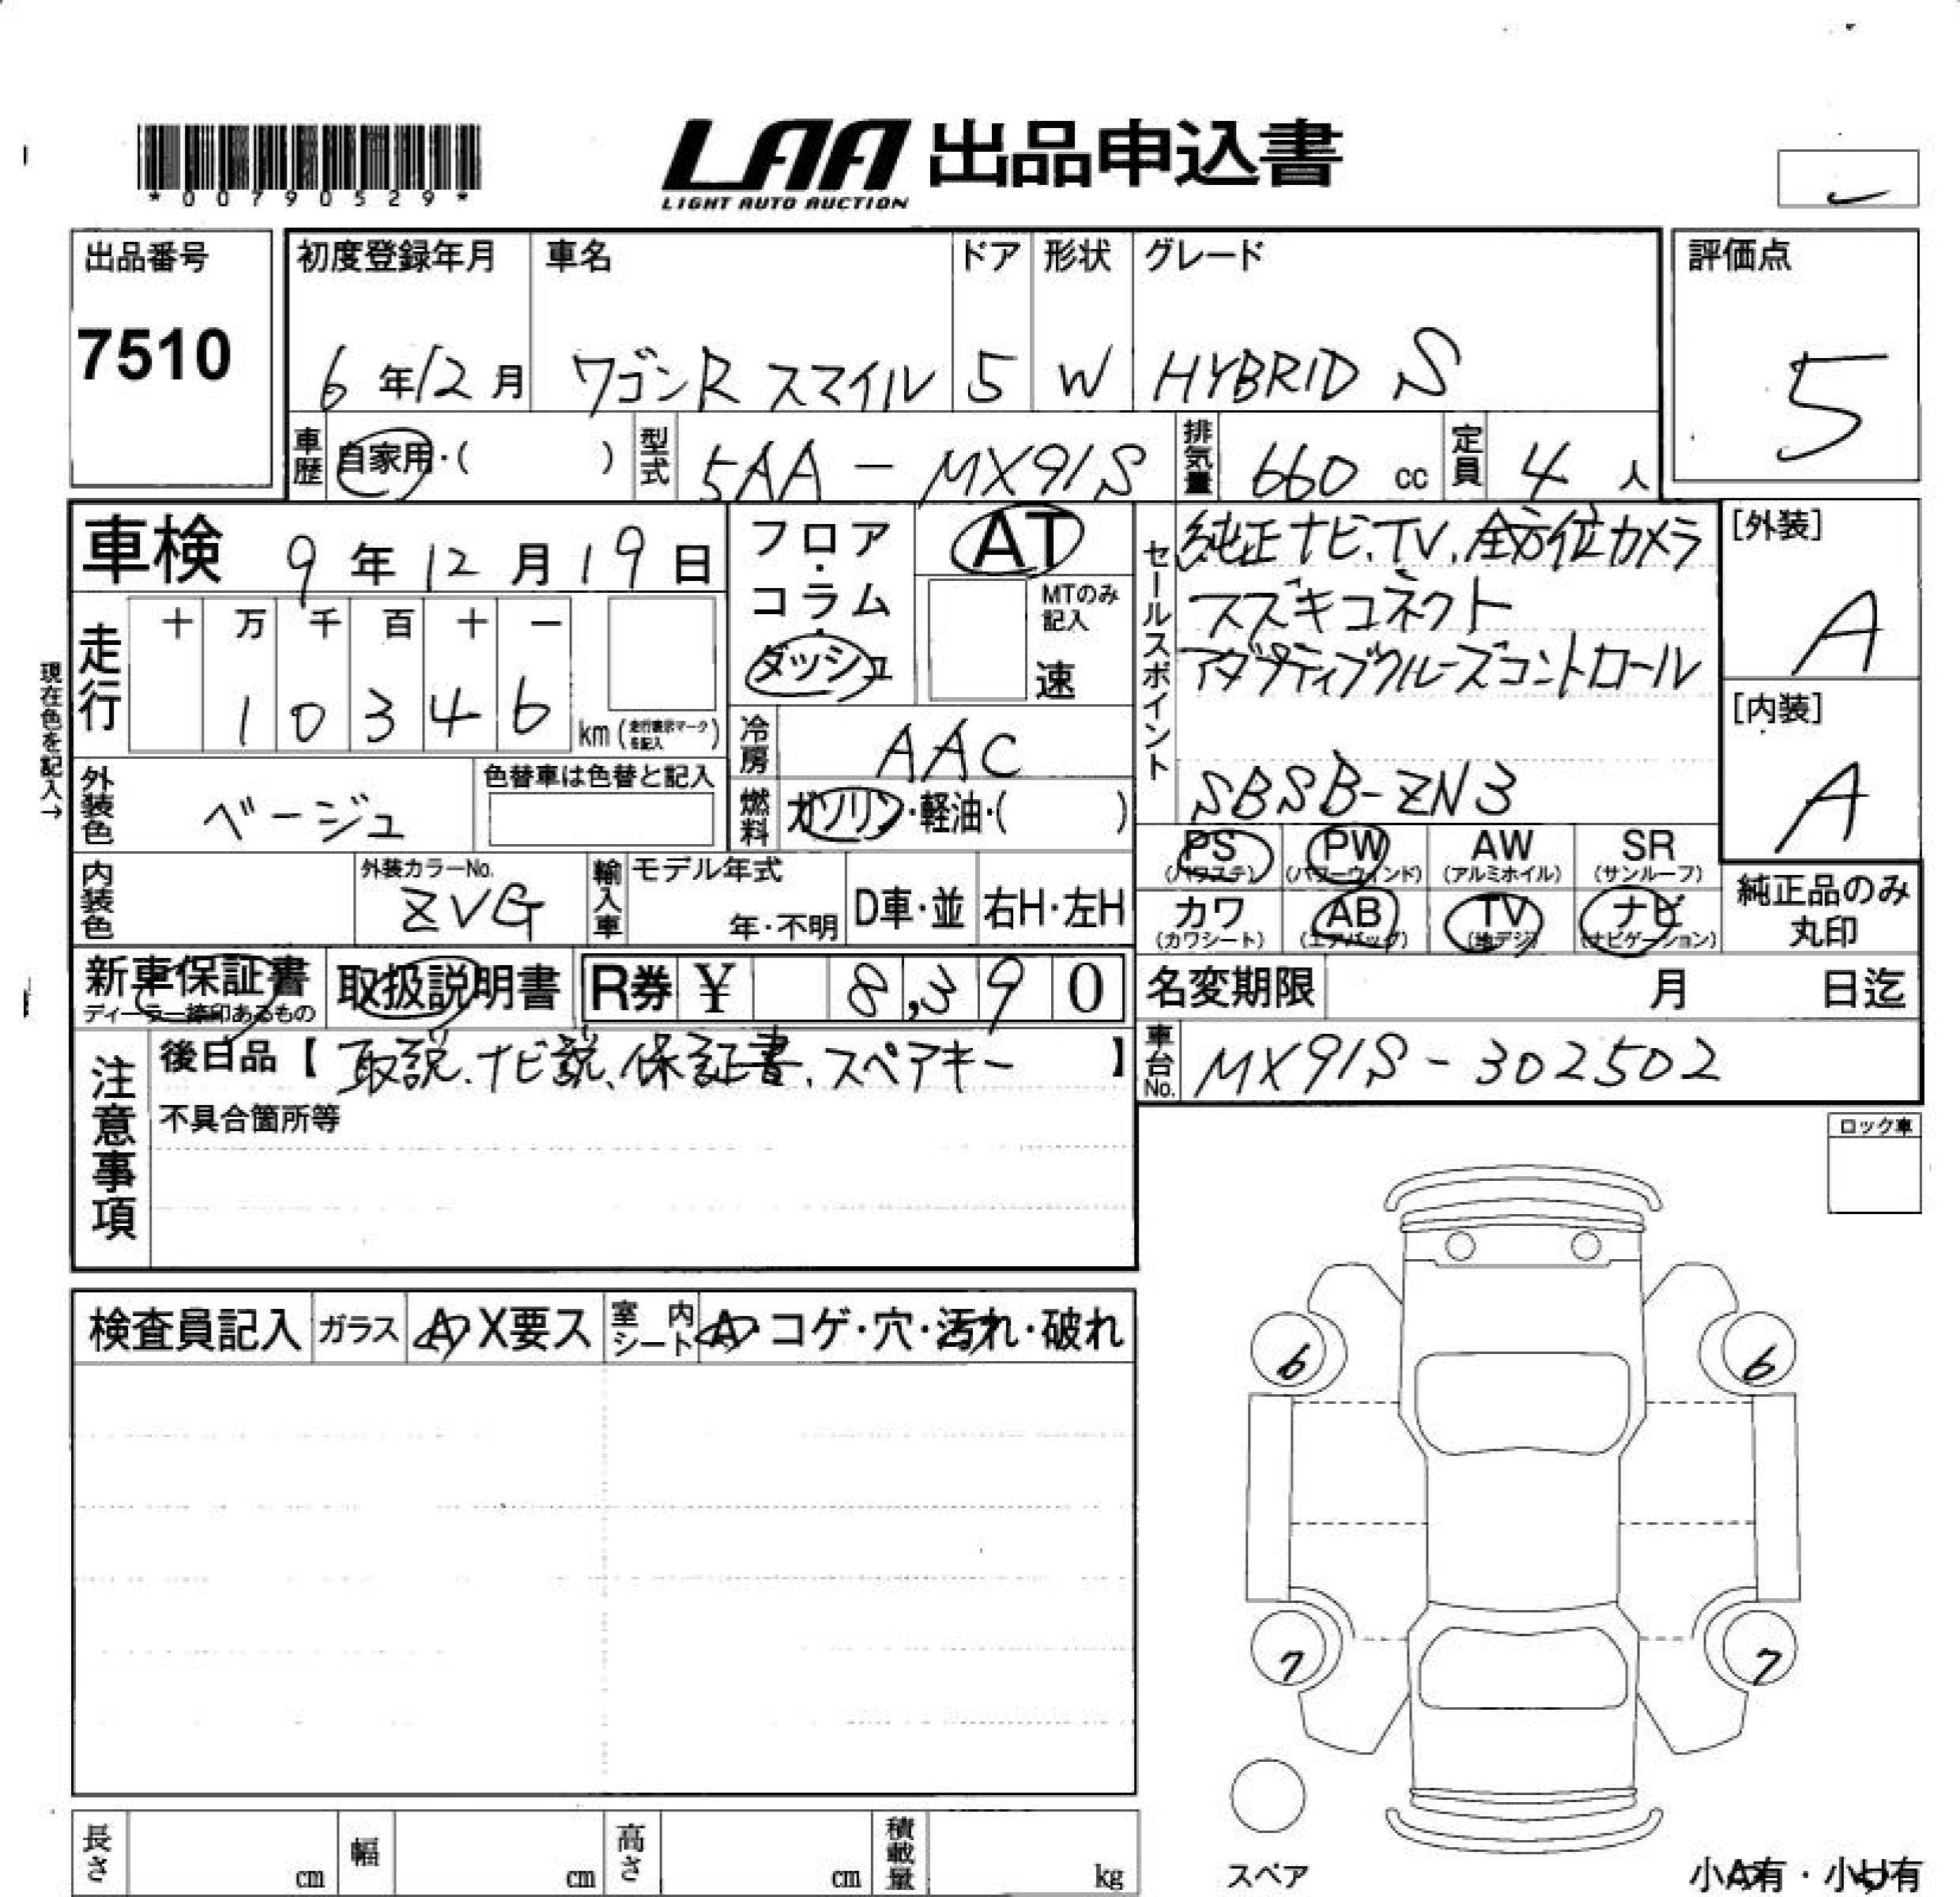 *00790529*
LAA 出品申込書
LIGHT AUTO AUCTION
出品番号
7510
初度登録年月
6年12月
車名
ワゴンR スマイル
ドア
5
形状
W
グレード
HYBRID S
評価点
5
車歴
自家用・( )
型式
5AA-MX91S
排気量
660 cc
定員
4 人
車検 9年12月19日
フロア・コラム・ダッシュ
AT
MTのみ記入
速
セールスポイント
純正ナビ、TV、全方位カメラ
スズキコネクト
アダプティブクルーズコントロール
SBSB-ZN3
[外装]
A
[内装]
A
現在色を記入→
走行
十 万 千 百 十 一
1 0 3 4 6
km (走行表示マークを記入)
冷房
AAC
外装色
ベージュ
色替車は色替と記入
燃料
ガソリン・軽油・( )
PS (パワステ)
PW (パワーウィンド)
AW (アルミホイル)
SR (サンルーフ)
カワ (カワシート)
AB (エアバッグ)
TV (地デジ)
ナビ (ナビゲーション)
純正品のみ丸印
内装色
外装カラーNo.
ZVG
輸入車
モデル年式
年・不明
D車・並
右H・左H
新車保証書
ディーラー捺印あるもの
取扱説明書
R券 ¥ 8,390
名変期限 月 日迄
注意事項
後日品【取説、ナビ説、保証書、スペアキー】
不具合箇所等
車台No.
MX91S-302502
ロック車
検査員記入
ガラス
A・X要ス
室内シート
A・コゲ・穴・汚れ・破れ
6
6
7
7
スペア
長さ cm
幅 cm
高さ cm
積載量 kg
小A有・小U有